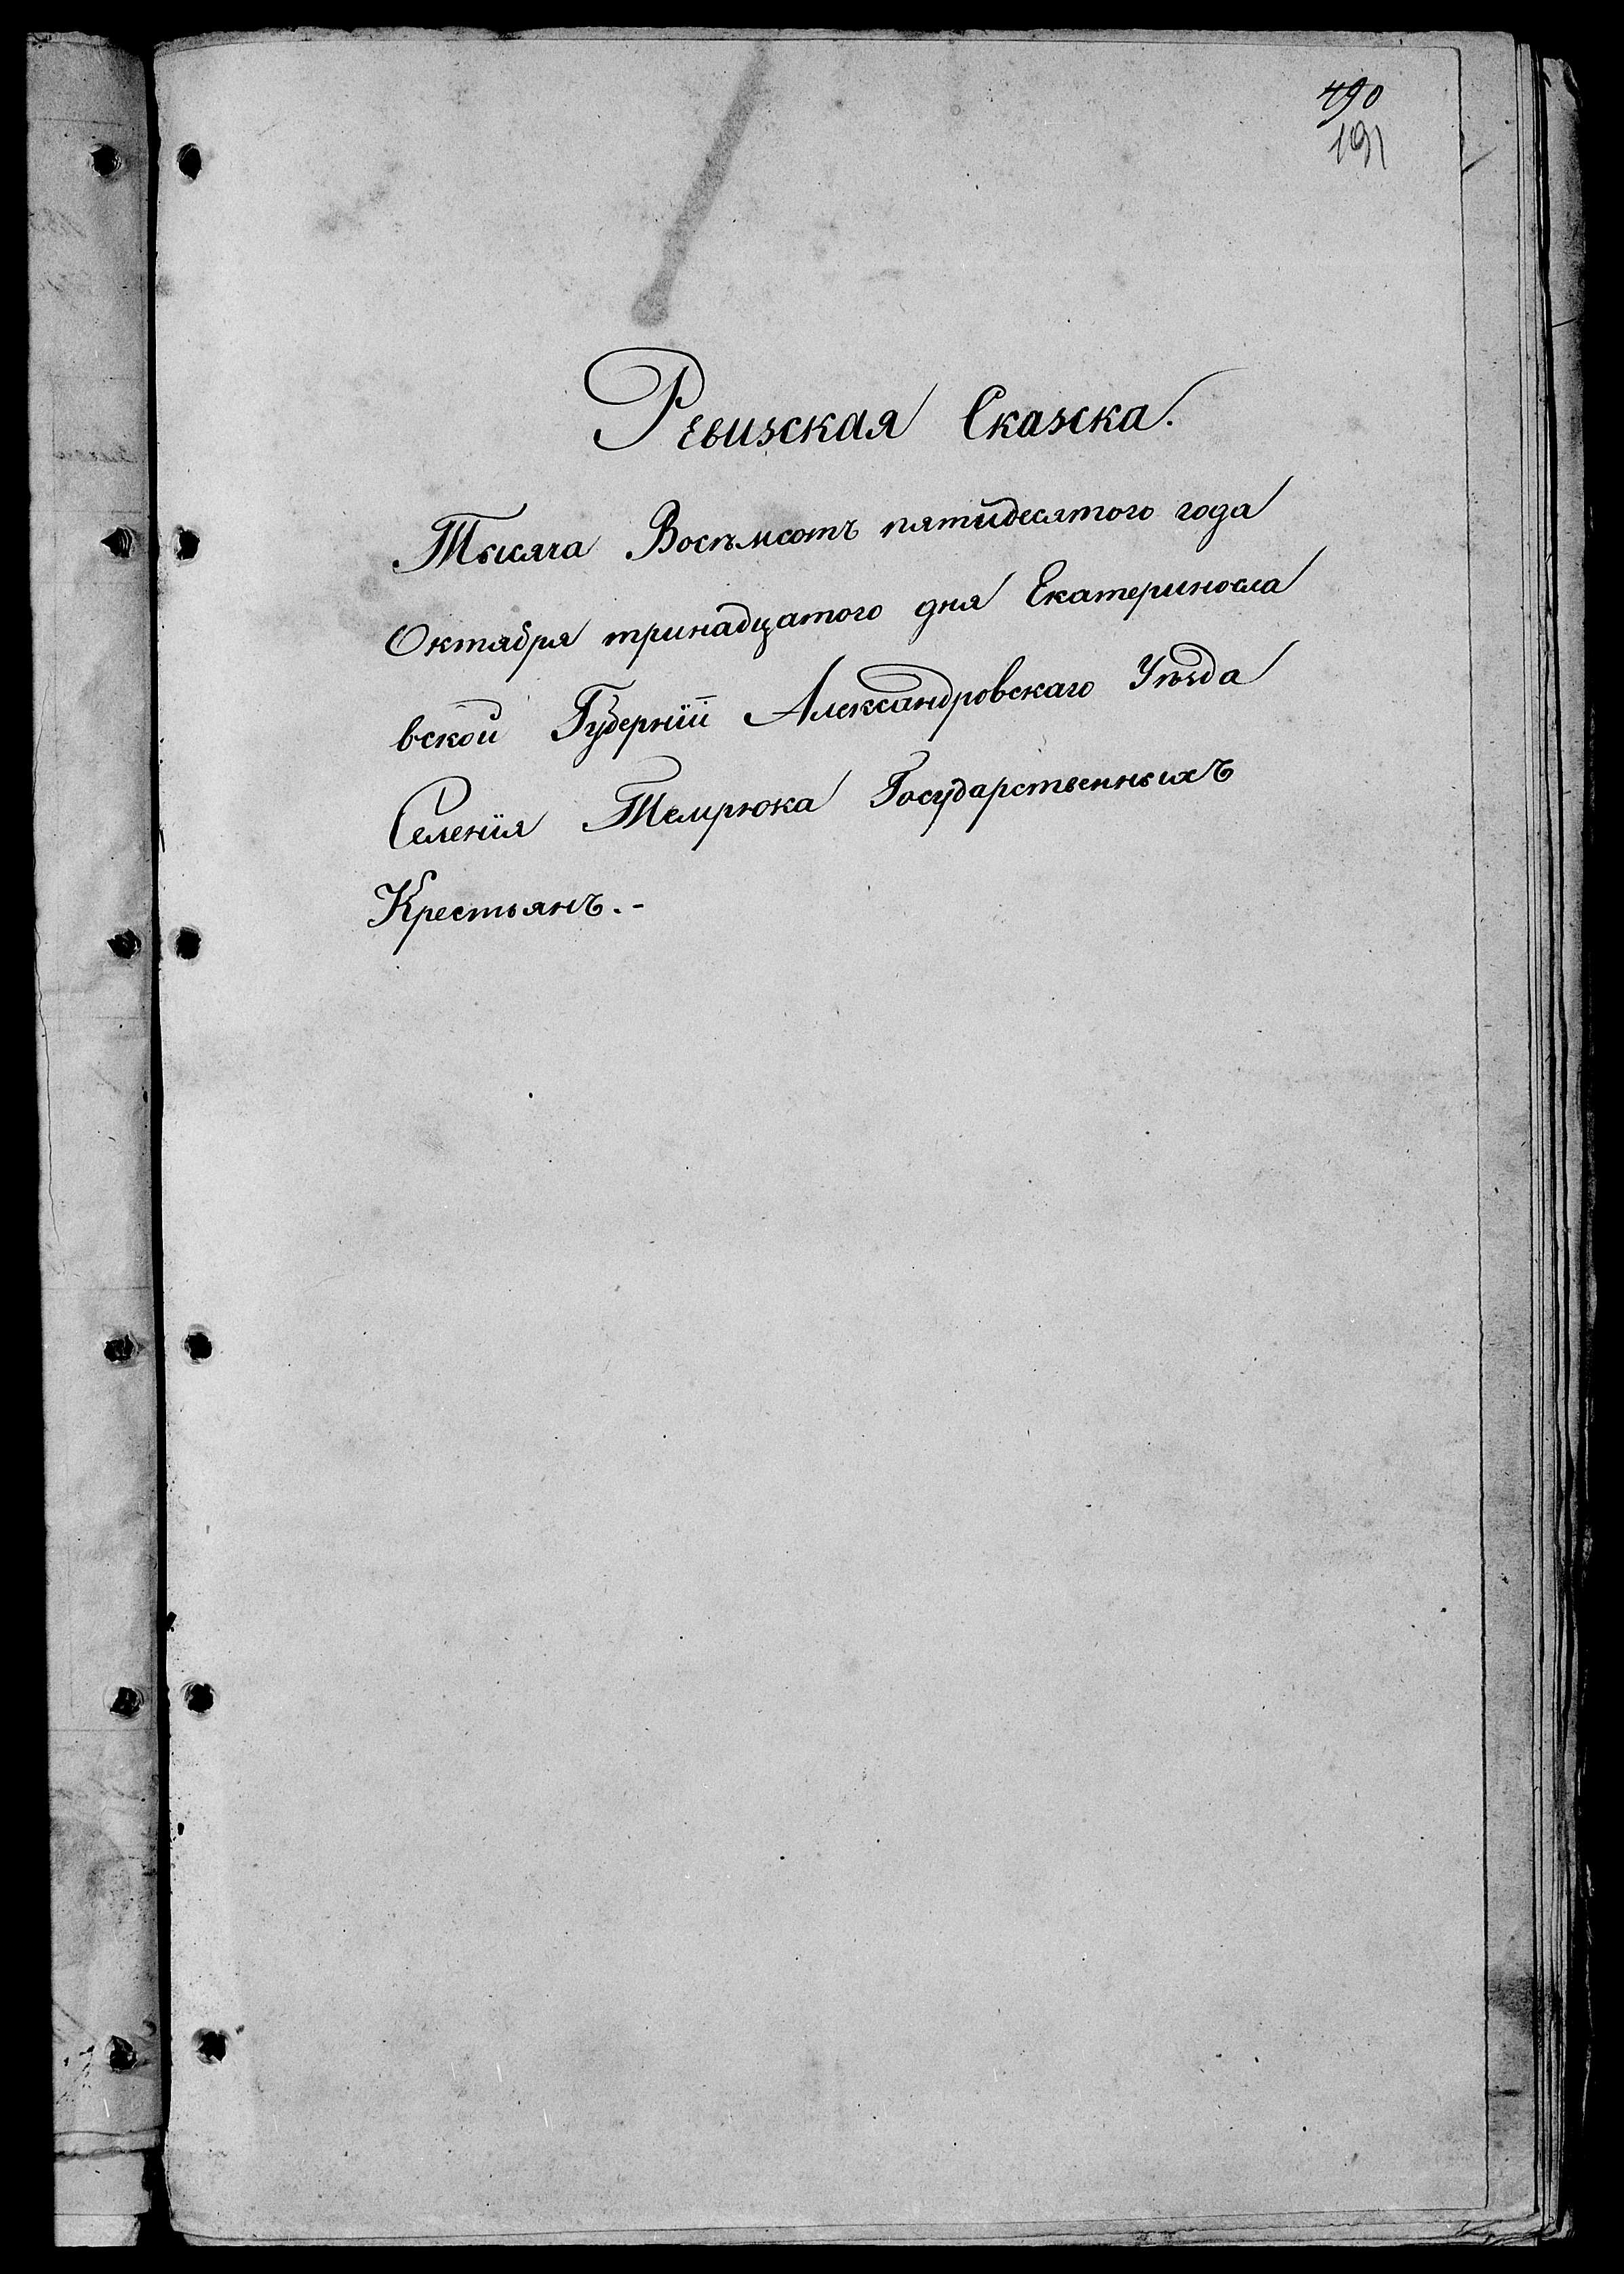 490
191
Ревизская Сказка.
Тысяча Восѣмсотъ пятидесятого года
Октября тринадцатого дня Екатериносла
вской Губерніи Александровскаго Уѣзда
Селенія Темрюка Государственныхъ
Крестьянъ.-